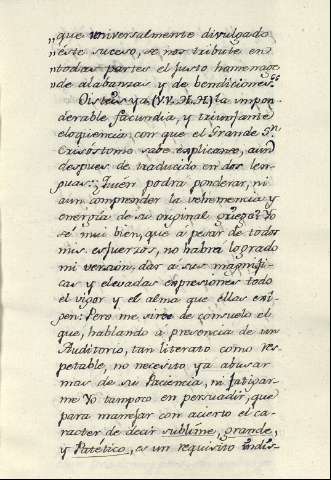 "que universalmente divulgado
"éste suceso, se nos tribute en
"todas partes el justo homenage
"de alabanzas y de bendiciones.
Oisteis ya (V.V. H.H.) la impon-
derable facundia, y triunfante
eloquencia con que el Grande Sn
Crisóstomo sabe explicarse, aun
despues de traducido en dos len-
guas: Quien podrá ponderar, ni
aun comprender la vehemencia y
energía de su original griego? Yo
sé mui bien, que á pesar de todos
mis esfuerzos, no habré logrado
mi versión, dar á sus magnifi-
cas y elevadas expresiones todo
el vigor y el alma que ellas exi-
gen: Pero me sirve de consuelo el
que, hablando á presencia de un
Auditorio, tan literato como res-
petable, no necesito ya abusar
mas de su Paciencia, ni fatigar-
me Yo tampoco en persuadir, que
para manejar con acierto el ca-
racter de decir sublíme, grande,
y Patético, es un requisito indis-